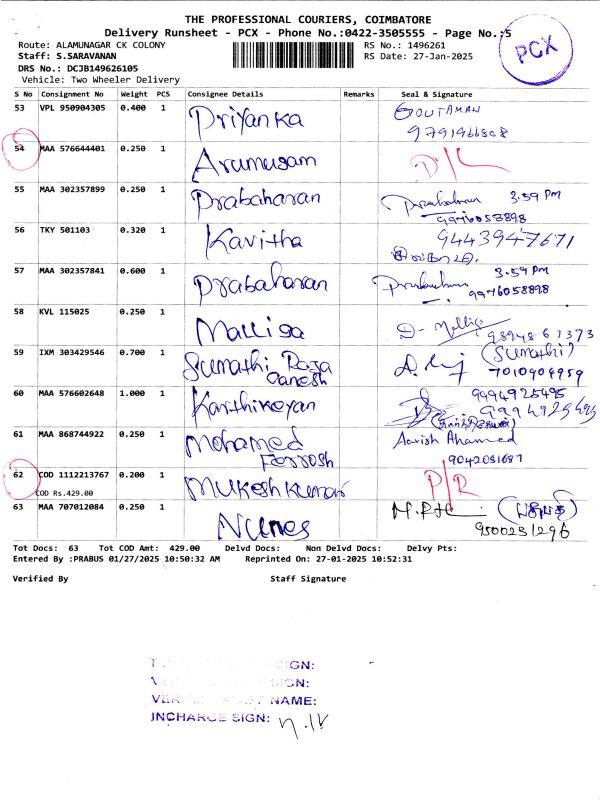 THE PROFESSIONAL COURIERS, COIMBATORE
Delivery Runsheet - PCX - Phone No.:0422-3505555 - Page No.:5
PCX
Route: ALAMUNAGAR CK COLONY RS No.: 1496261
Staff: S.SARAVANAN RS Date: 27-Jan-2025
DRS No.: DCJB149626105
Vehicle: Two Wheeler Delivery
S No Consignment No Weight PCS Consignee Details Remarks Seal & Signature
53 VPL 950904305 0.400 1 Priyanka GOUTAMAN
9791966808
54 MAA 576644401 0.250 1 Arumugam D/L
55 MAA 302357899 0.250 1 Prabaharan Prabaharan 3.59 Pm
9976058898
56 TKY 501103 0.320 1 Kavitha 9443947671
57 MAA 302357841 0.600 1 Prabaharan 3.59 Pm
9976058898
58 KVL 115025 0.250 1 Malliga D- Malliga
98948 67373
59 IXM 303429546 0.700 1 Sumathi Raja Ganesh (Sumathi)
7010909959
60 MAA 576602648 1.000 1 Karthikeyan 9994925495
9994925495
61 MAA 868744922 0.250 1 Mohamed Ferrosh Aarish Ahamed
9042031687
62 COD 1112213767 0.200 1 Mukesh Kumar P/R
COD Rs.429.00
63 MAA 707012084 0.250 1 Nunes
9500251296
Tot Docs: 63 Tot COD Amt: 429.00 Delvd Docs: Non Delvd Docs: Delvy Pts:
Entered By :PRABUS 01/27/2025 10:50:32 AM Reprinted On: 27-01-2025 10:52:31
Verified By Staff Signature
SIGN:
SIGN:
NAME:
INCHARGE SIGN: